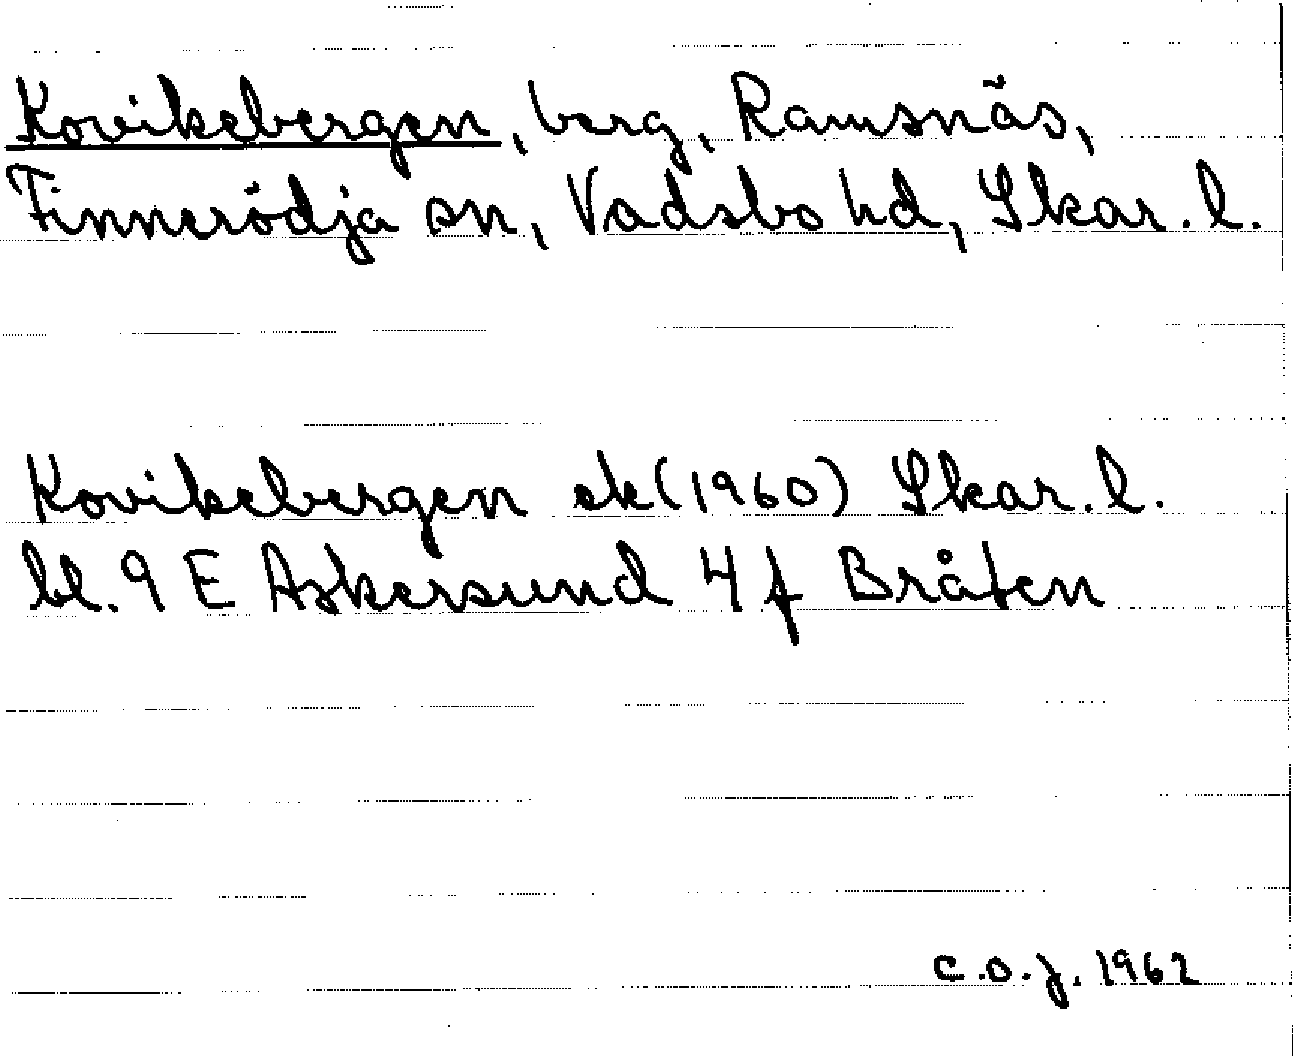 Kovikebergen, berg, Ramsnäs,
Finnerödja sn, Vadsbo hd, Skar. l.
Kovikebergen ek (1960) Skar. l.
bl. 9 E Askersund 4 f Bråten
C.O.J. 1962